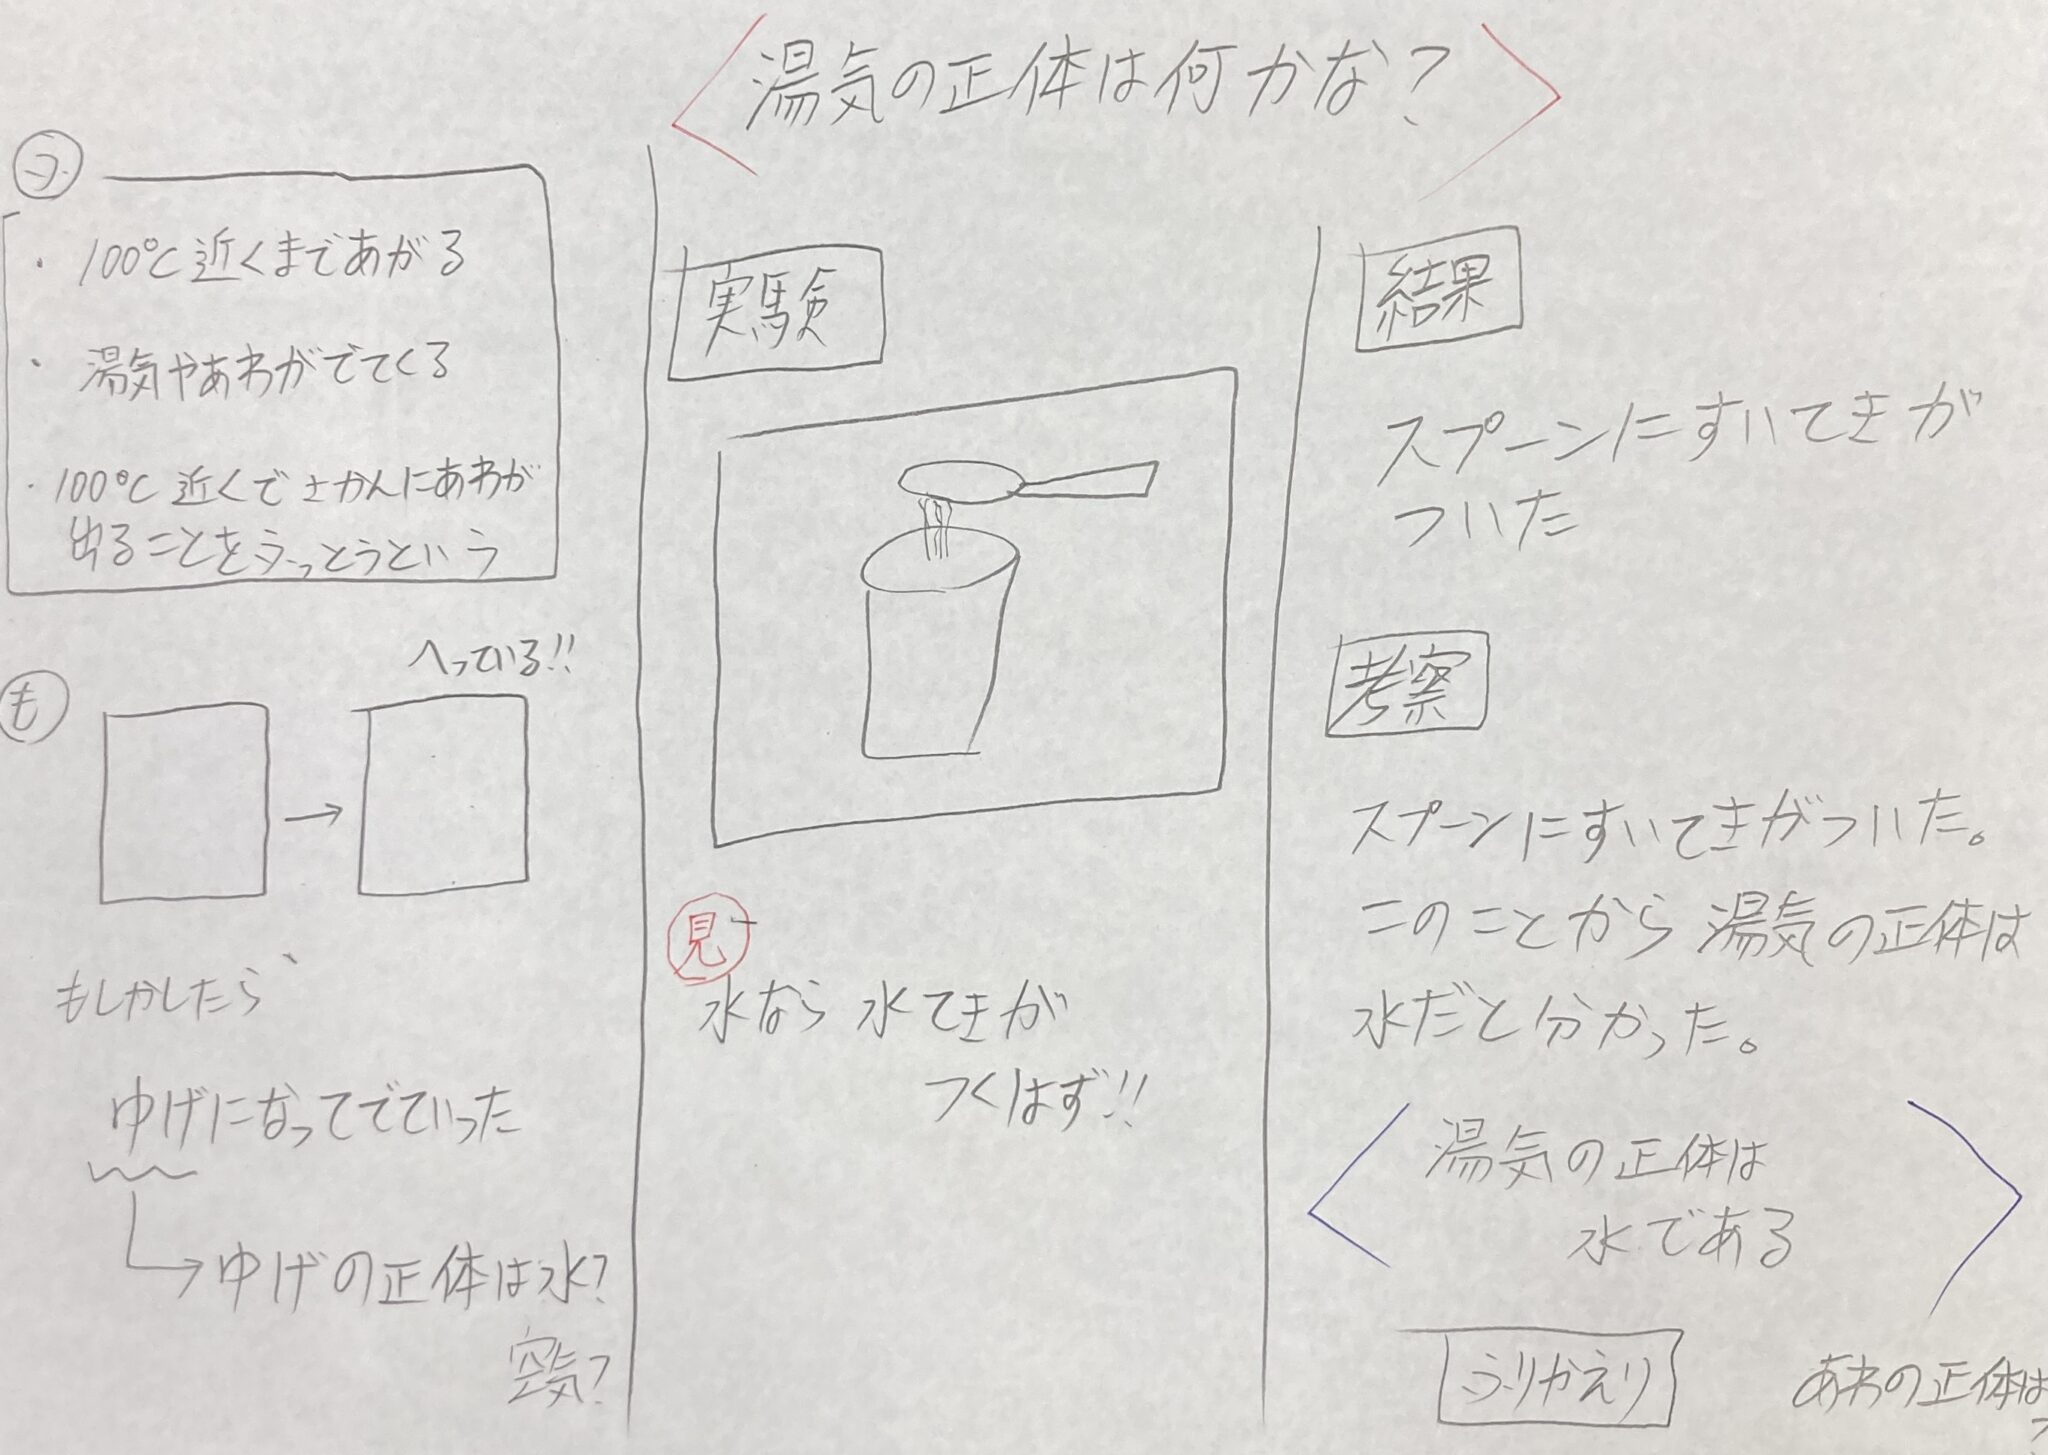 湯気の正体は何かな?
ふ
・100℃近くまであがる
・湯気やあわがでてくる
・100℃近くでさかんにあわが
出ることをふっとうという
も
へっている!!
もしかしたら、
ゆげになってでていった
ゆげの正体は水?
空気?
実験
見
水なら水てきが
つくはず!!
結果
スプーンにすいてきが
ついた
考察
スプーンにすいてきがついた。
このことから湯気の正体は
水だと分かった。
湯気の正体は
水である
ふりかえり
あわの正体は
?